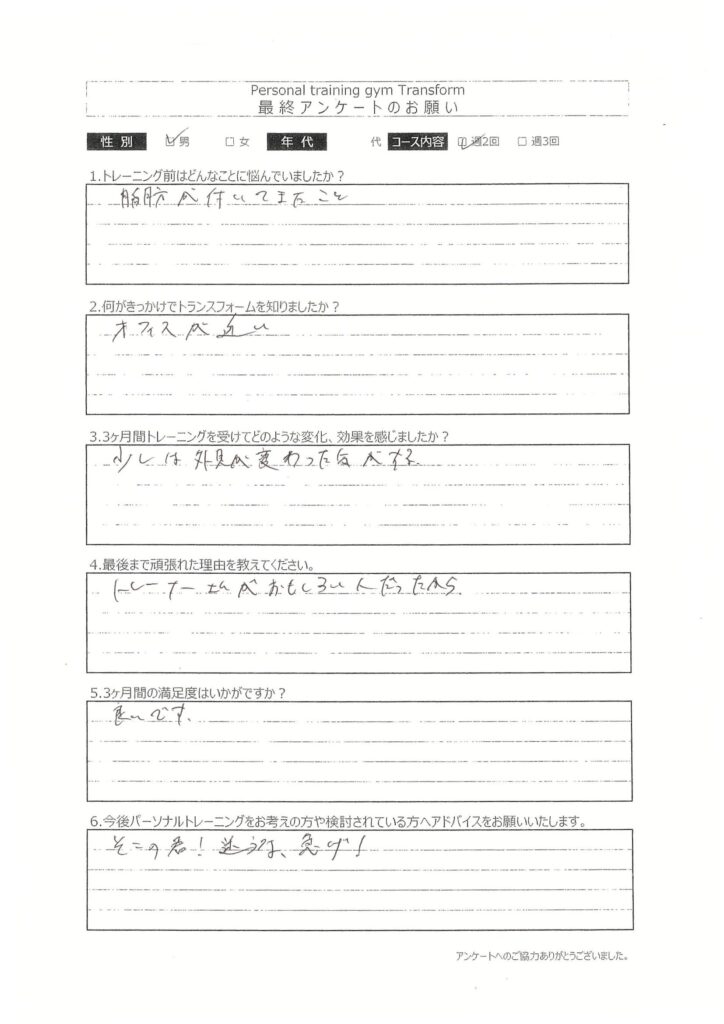 Personal training gym Transform
最終アンケートのお願い
性別 ☑男 □女 年代 代 コース内容 ☑週2回 □週3回
1.トレーニング前はどんなことに悩んでいましたか?
脂肪が付いてきたこと
2.何がきっかけでトランスフォームを知りましたか?
オフィスが近い
3.3ヶ月間トレーニングを受けてどのような変化、効果を感じましたか?
少しは外見が変わった気がする
4.最後まで頑張れた理由を教えてください。
トレーナーさんがおもしろい人だったから。
5.3ヶ月間の満足度はいかがですか?
良いです。
6.今後パーソナルトレーニングをお考えの方や検討されている方へアドバイスをお願いいたします。
そこの君!迷うな、急げ!
アンケートへのご協力ありがとうございました。